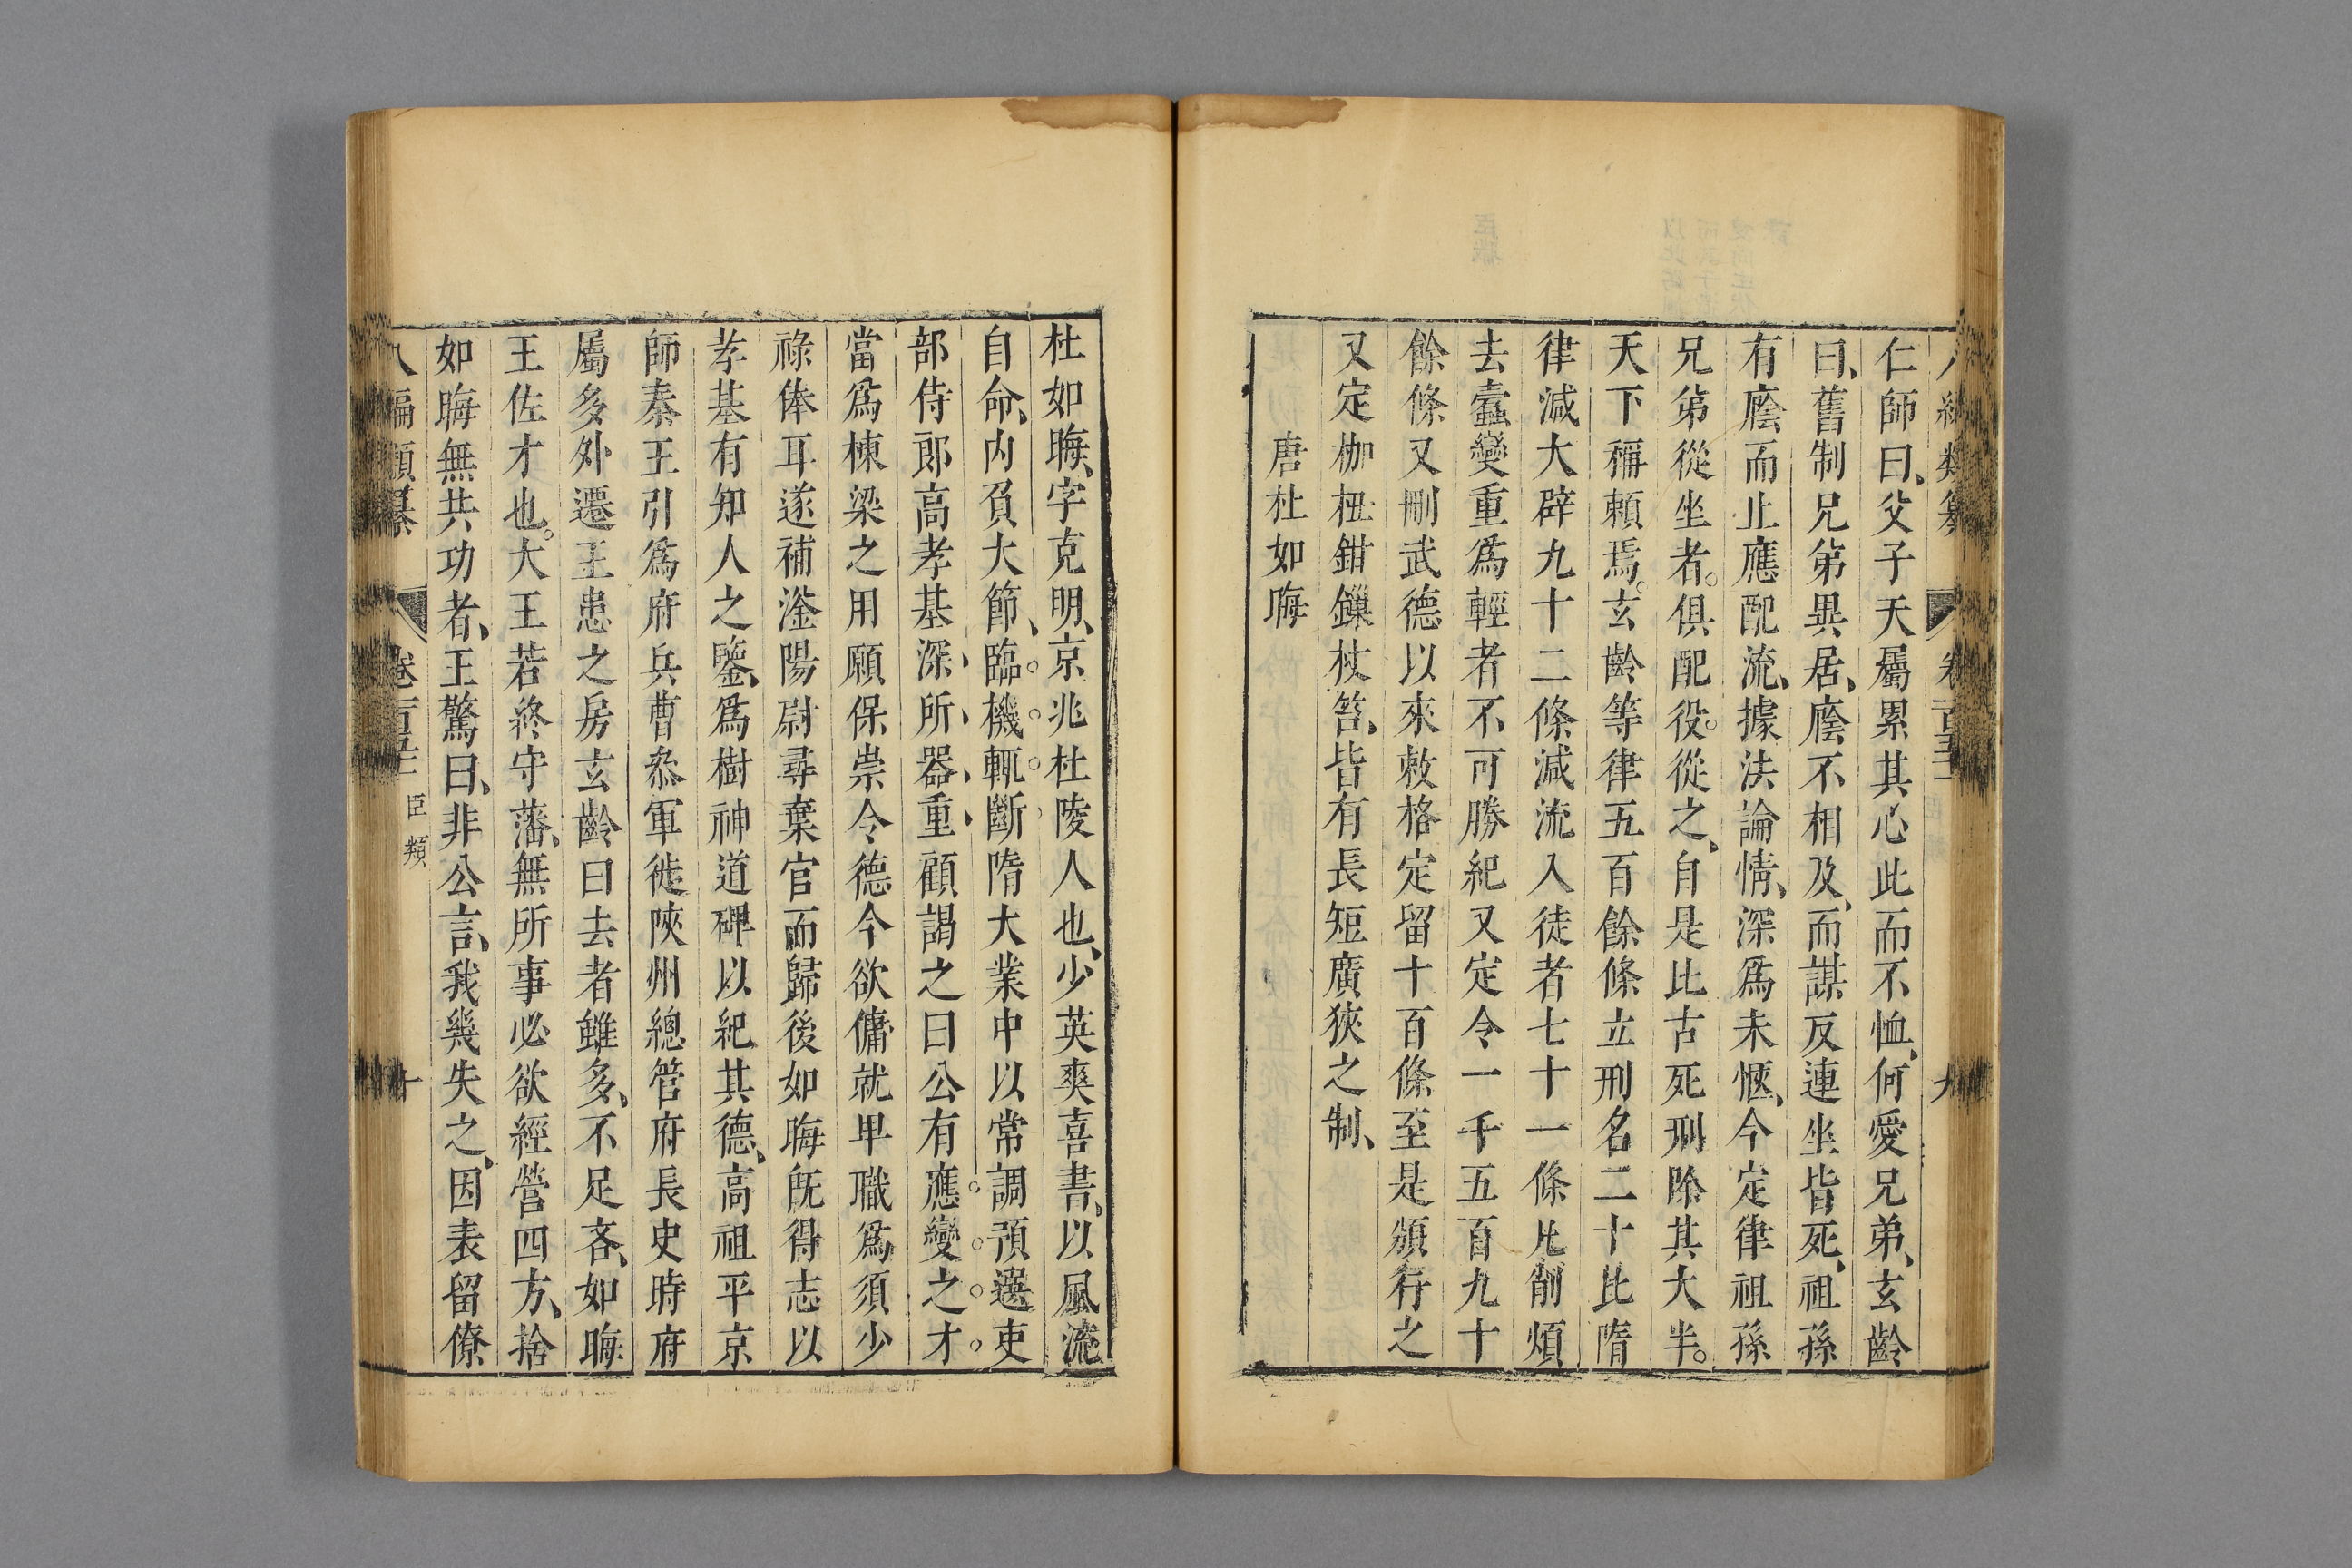 仁師曰、父子天屬累其心此而不恤、何愛兄弟、玄齡
曰、舊制兄弟異居、廕不相及、而謀反連坐皆死、祖孫
有廕而止應配流、據法論情、深爲未愜、今定律祖孫
兄弟從坐者。俱配役。從之、自是比古死刑除其大半。
天下稱賴焉。玄齡等律五百餘條立刑名二十比隋
律減大辟九十二條減流入徒者七十一條凡削煩
去蠹變重爲輕者不可勝紀又定令一千五百九十
餘條又刪武德以來敕格定留十百條至是頒行之
又定枷杻鉗鏁杖笞、皆有長短廣狹之制、
唐杜如晦
杜如晦、字克明、京兆杜陵人也、少英爽喜書、以風流
自命、內負大節、臨機輒斷隋大業中以常調預選吏
部侍郎高孝基深所器重顧謂之曰公有應變之才
當爲棟梁之用願保崇令德今欲俯就卑職爲須少
祿俸耳遂補滏陽尉尋棄官而歸後如晦既得志以
孝基有知人之鑒、爲樹神道碑以紀其德、高祖平京
師秦王引爲府兵曹叅軍徙陝州總管府長史時府
屬多外遷王患之房玄齡曰去者雖多、不足吝、如晦
王佐才也。大王若終守藩、無所事必欲經營四方、捨
如晦無共功者、王驚曰、非公言、我幾失之、因表留僚
八編類纂 卷 臣類 十